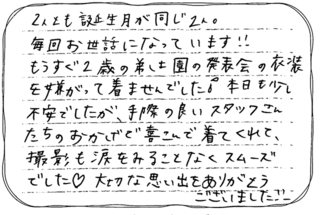 2人とも誕生月が同じ2人。
毎回お世話になっています!!
もうすぐ2歳の弟は園の発表会の衣装
を嫌がって着ませんでした。本日も少し
不安でしたが、手際の良いスタッフさん
たちのおかげで喜こんで着てくれて、
撮影も涙をみることなくスムーズ
でした♡ 大切な思い出をありがとう
ございました